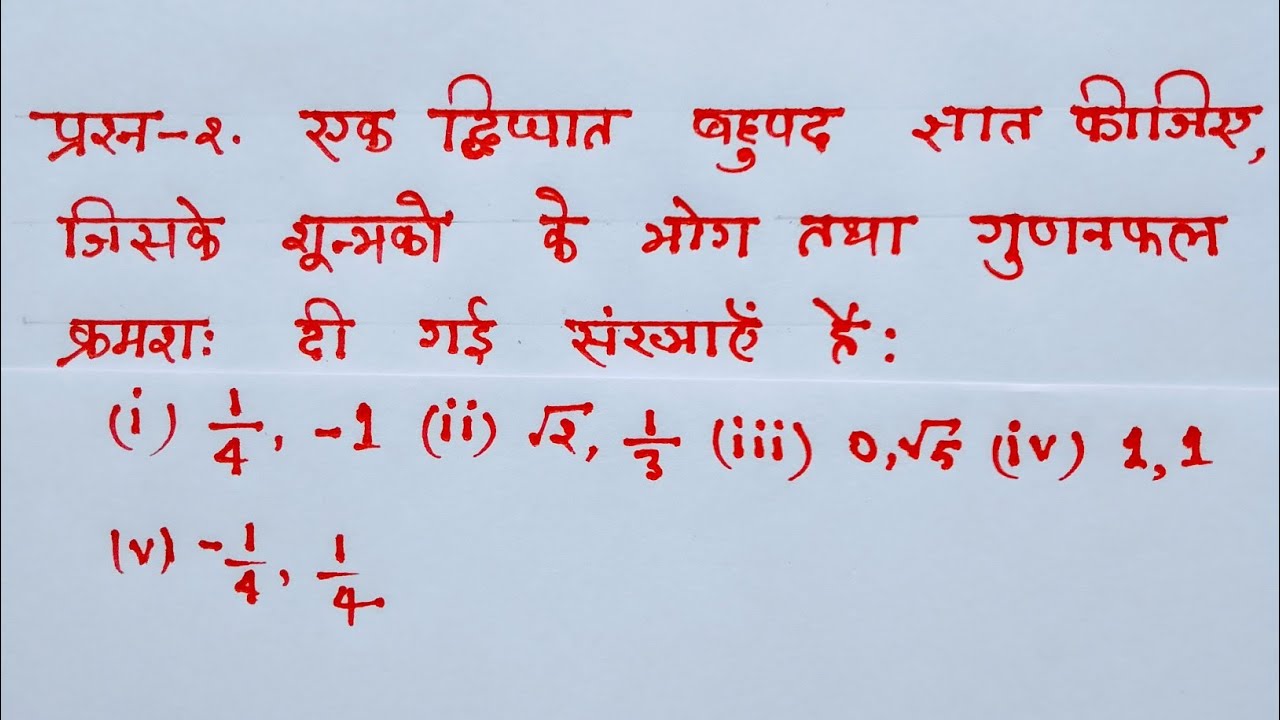 प्रश्न-२. एक द्विघात बहुपद ज्ञात कीजिए,
जिसके शून्यको के योग तथा गुणनफल
क्रमशः दी गई संख्याएँ है:
(i) 1/4, -1 (ii) √2, 1/3 (iii) 0,√5 (iv) 1,1
(v) -1/4, 1/4